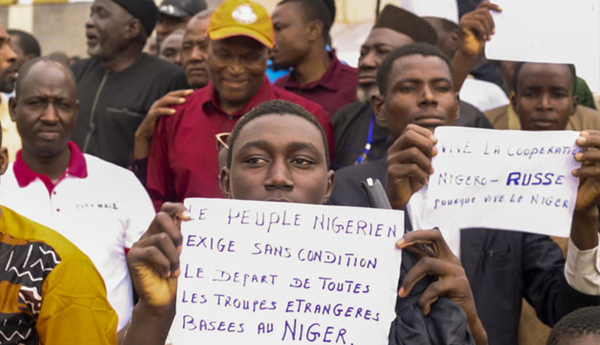 LE PEUPLE NIGERIEN
EXIGE SANS CONDITION
LE DEPART DE TOUTES
LES TROUPES ETRANGERES
BASEES AU NIGER.
VIVE LA COOPERATION
NIGERO - RUSSE
POURQUE VIVE LE NIGER
CITY MALE